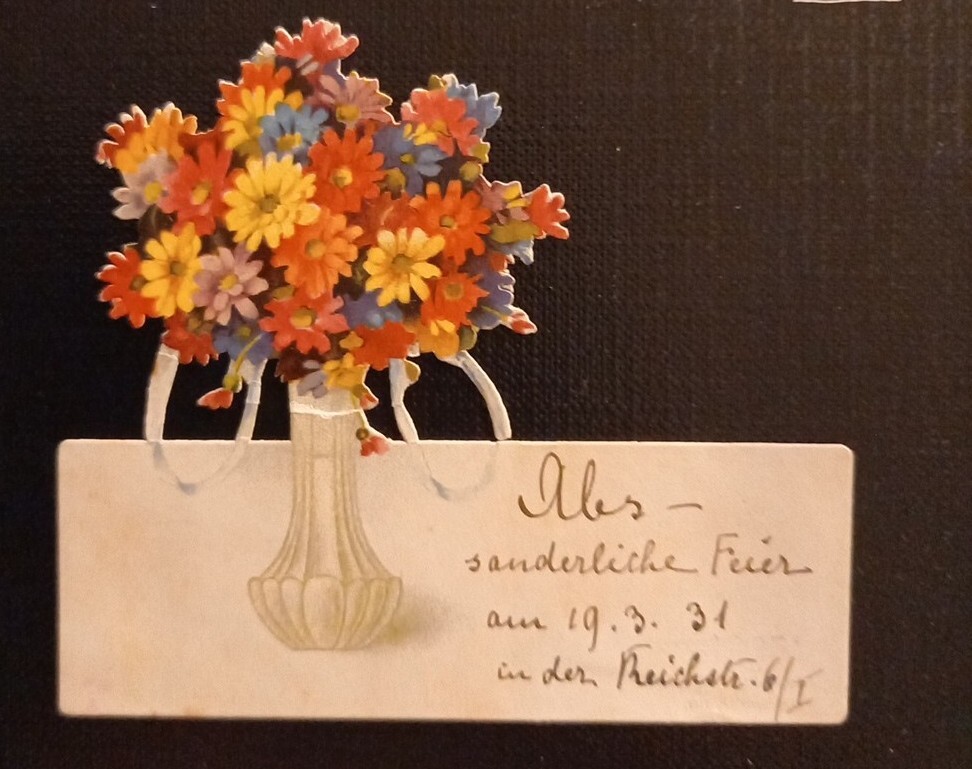 Abs-
sanderliche Feier
am 19. 3. 31
in der Reichstr. 6/I